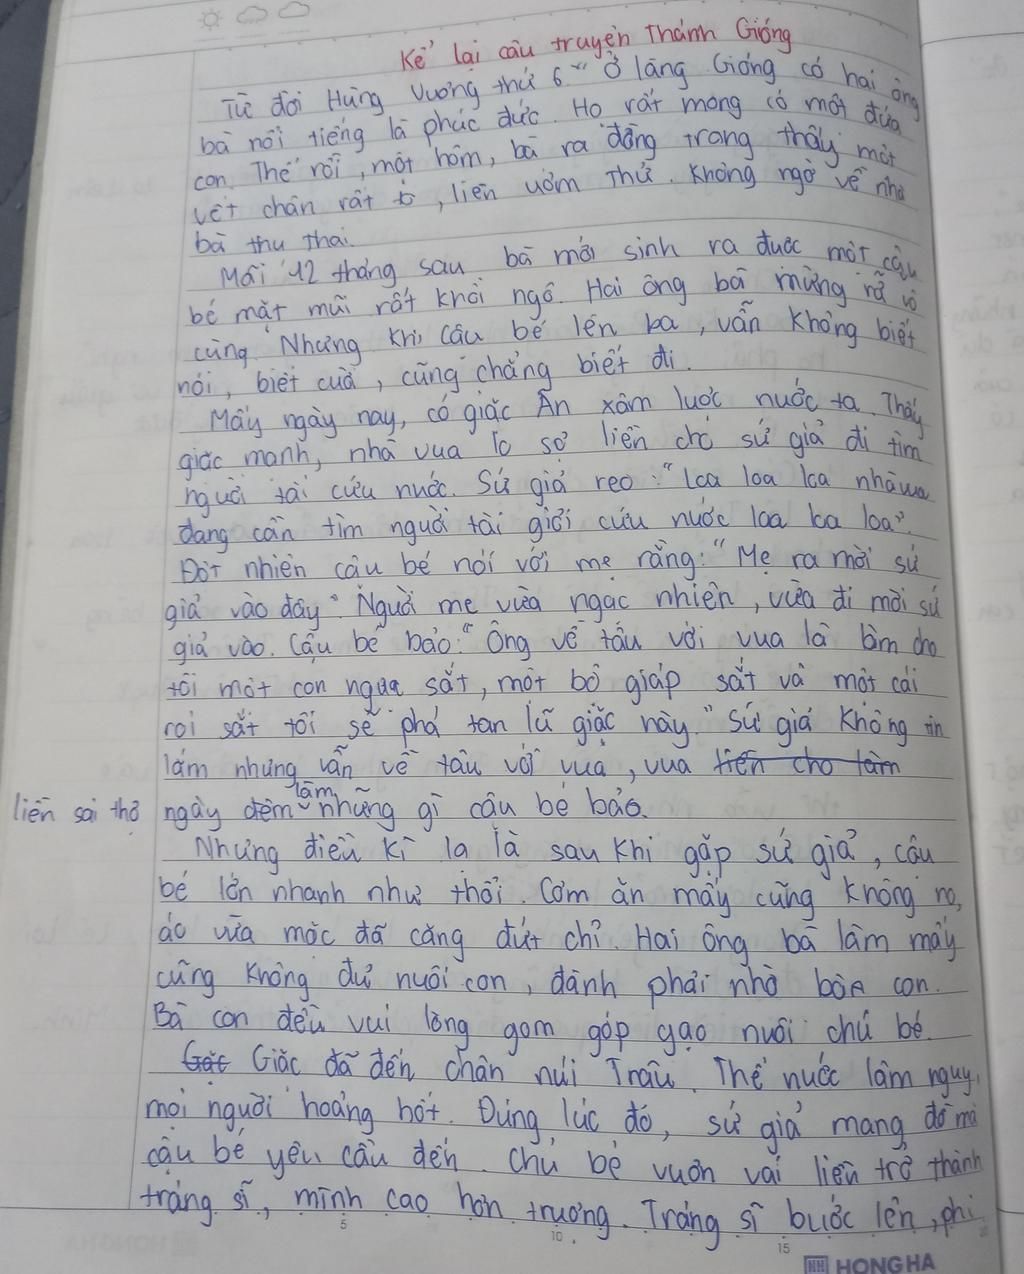 Kể lại câu truyện Thánh Gióng
Từ đời Hùng Vương thứ 6 ở làng Gióng có hai ông
bà nổi tiếng là phúc đức. Họ rất mong có một đứa
con. Thế rồi, một hôm, bà ra đồng trong thấy một
vết chân rất to, liền ướm thử. Không ngờ về nhà
bà thụ thai.
Mãi 12 tháng sau bà mới sinh ra được một cậu
bé mặt mũi rất khôi ngô. Hai ông bà mừng rỡ vô
cùng. Nhưng khi cậu bé lên ba, vẫn không biết
nói, biết cười, cũng chẳng biết đi.
Mấy ngày nay, có giặc Ân xâm lược nước ta. Thấy
giặc mạnh, nhà vua lo sợ liền cho sứ giả đi tìm
người tài cứu nước. Sứ giả reo: "Loa loa loa nhà vua
đang cần tìm người tài giỏi cứu nước loa loa loa"
Đột nhiên cậu bé nói với mẹ rằng: "Mẹ ra mời sứ
giả vào đây". Người mẹ vừa ngạc nhiên, vừa đi mời sứ
giả vào. Cậu bé bảo: "Ông về tâu với vua là làm cho
tôi một con ngựa sắt, một bộ giáp sắt và một cái
roi sắt tôi sẽ phá tan lũ giặc này". Sứ giả không tin
lắm nhưng vẫn về tâu với vua, vua liền cho làm
liền sai thợ ngày đêm làm những gì cậu bé bảo.
Nhưng điều kì lạ là sau khi gặp sứ giả, cậu
bé lớn nhanh như thổi. Cơm ăn mấy cũng không no,
áo vừa mặc đã căng đứt chỉ. Hai ông bà làm mấy
cũng không đủ nuôi con, đành phải nhờ bà con.
Bà con đều vui lòng gom góp gạo nuôi chú bé.
Giặc đã đến chân núi Trâu. Thế nước lâm nguy,
mọi người hoảng hốt. Đúng lúc đó, sứ giả mang đồ mà
cậu bé yêu cầu đến. Chú bé vươn vai liền trở thành
tráng sĩ, mình cao hơn trượng. Tráng sĩ bước lên, phi
5
10
15
HH HONG HA